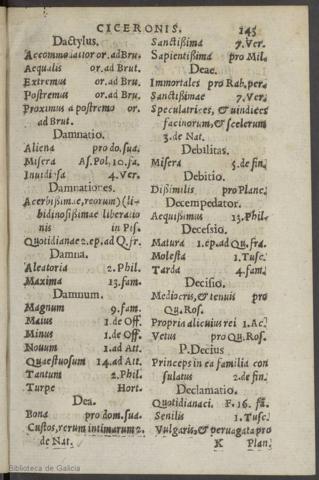 CICERONIS. 145
Dactylus.
Accommodatior or. ad Bru.
Aequalis or. ad Brut.
Extremus or. ad Bru.
Postremus or. ad Bru.
Proximus a postremo or.
ad Brut.
Damnatio.
Aliena pro do. sua.
Misera As. Pol. 10. fa.
Inuidiosa 4. Ver.
Damnationes.
Acerbißimae, reorum) (li-
bidinosißimae liberatio
nis in Pis.
Quotidianae 2. ep. ad Q. fr.
Damna.
Aleatoria 2. Phil.
Maxima 13. fam.
Damnum.
Magnum 9. fam.
Maius 1. de Off.
Minus 1. de Off.
Nouum 1. ad Att.
Quaestuosum 14. ad Att.
Tantum 2. Phil.
Turpe Hort.
Dea.
Bona pro dom. sua.
Custos, rerum intimarum 2.
de Nat.
Sanctißima 7. Ver.
Sapientißima pro Mil.
Deae.
Immortales pro Rab. per.
Sanctißimae 7. Ver.
Speculatrices, & uindices
facinorum, & scelerum
3. de Nat.
Debilitas.
Misera 5. de fin.
Debitio.
Dißimilis pro Planc.
Decempedator.
Aequißimus 13. Phil.
Deceßio.
Matura 1. ep. ad Qu. fra.
Molesta 1. Tusc.
Tarda 4. fam.
Decisio.
Mediocris, & tenuis pro
Qu. Ros.
Propria alicuius rei 1. Ac.
Vetus pro Qu. Ros.
P. Decius
Princeps in ea familia con
sulatus 2. de fin.
Declamatio.
Quotidiana ci. F. 16. fā.
Senilis 1. Tusc.
Vulgaris, & peruagata pro
K Plan.
Biblioteca de Galicia